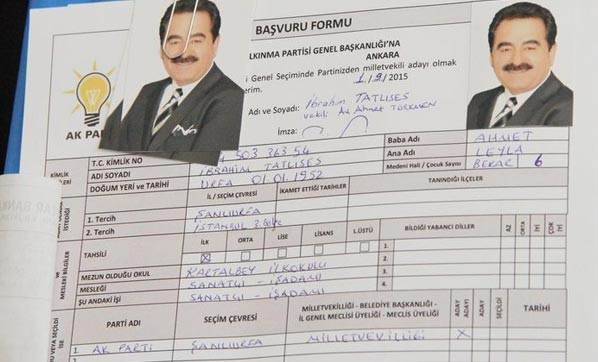 BAŞVURU FORMU
ALKINMA PARTİSİ GENEL BAŞKANLIĞI'NA
ANKARA
i Genel Seçiminde Partinizden milletvekili adayı olmak
erim.
1/9/2015
Adı ve Soyadı: İbrahim TATLISES
vekili Av. Ahmet TÜRKMEN
İmza:
AK PA
Baba Adı AHMET
Ana Adı LEYLA
Medeni Hali / Çocuk Sayısı BEKAR 6
KİMLİK
T.C. KİMLİK NO 503 363 54
ADI SOYADI İBRAHİM TATLISES
DOĞUM YERİ ve TARİHİ URFA 01.01.1952
İL / SEÇİM ÇEVRESİ İKAMET ETTİĞİ TARİHLER TANINDIĞI İLÇELER
İSTEDİĞİ
1. Tercih ŞANLIURFA
2. Tercih İSTANBUL 3. Bölge
TAHSİLİ İLK ORTA LİSE LİSANS L.ÜSTÜ BİLDİĞİ YABANCI DİLLER AZ ORTA İYİ ÇOK İYİ
X
1.
2.
3.
4.
MESLEKİ BİLGİLER
MEZUN OLDUĞU OKUL KARTALBEY İLKOKULU
MESLEĞİ SANATÇI - İŞADAMI
ŞU ANDAKİ İŞİ SANATÇI - İŞADAMI
PARTİ ADI SEÇİM ÇEVRESİ MİLLETVEKİLLİĞİ - BELEDİYE BAŞKANLIĞI -
İL GENEL MECLİS ÜYELİĞİ - MECLİS ÜYELİĞİ ADAY ADAYI ADAY SEÇİLDİ TARİHİ
AK PARTİ ŞANLIURFA MİLLETVEKİLLİĞİ X